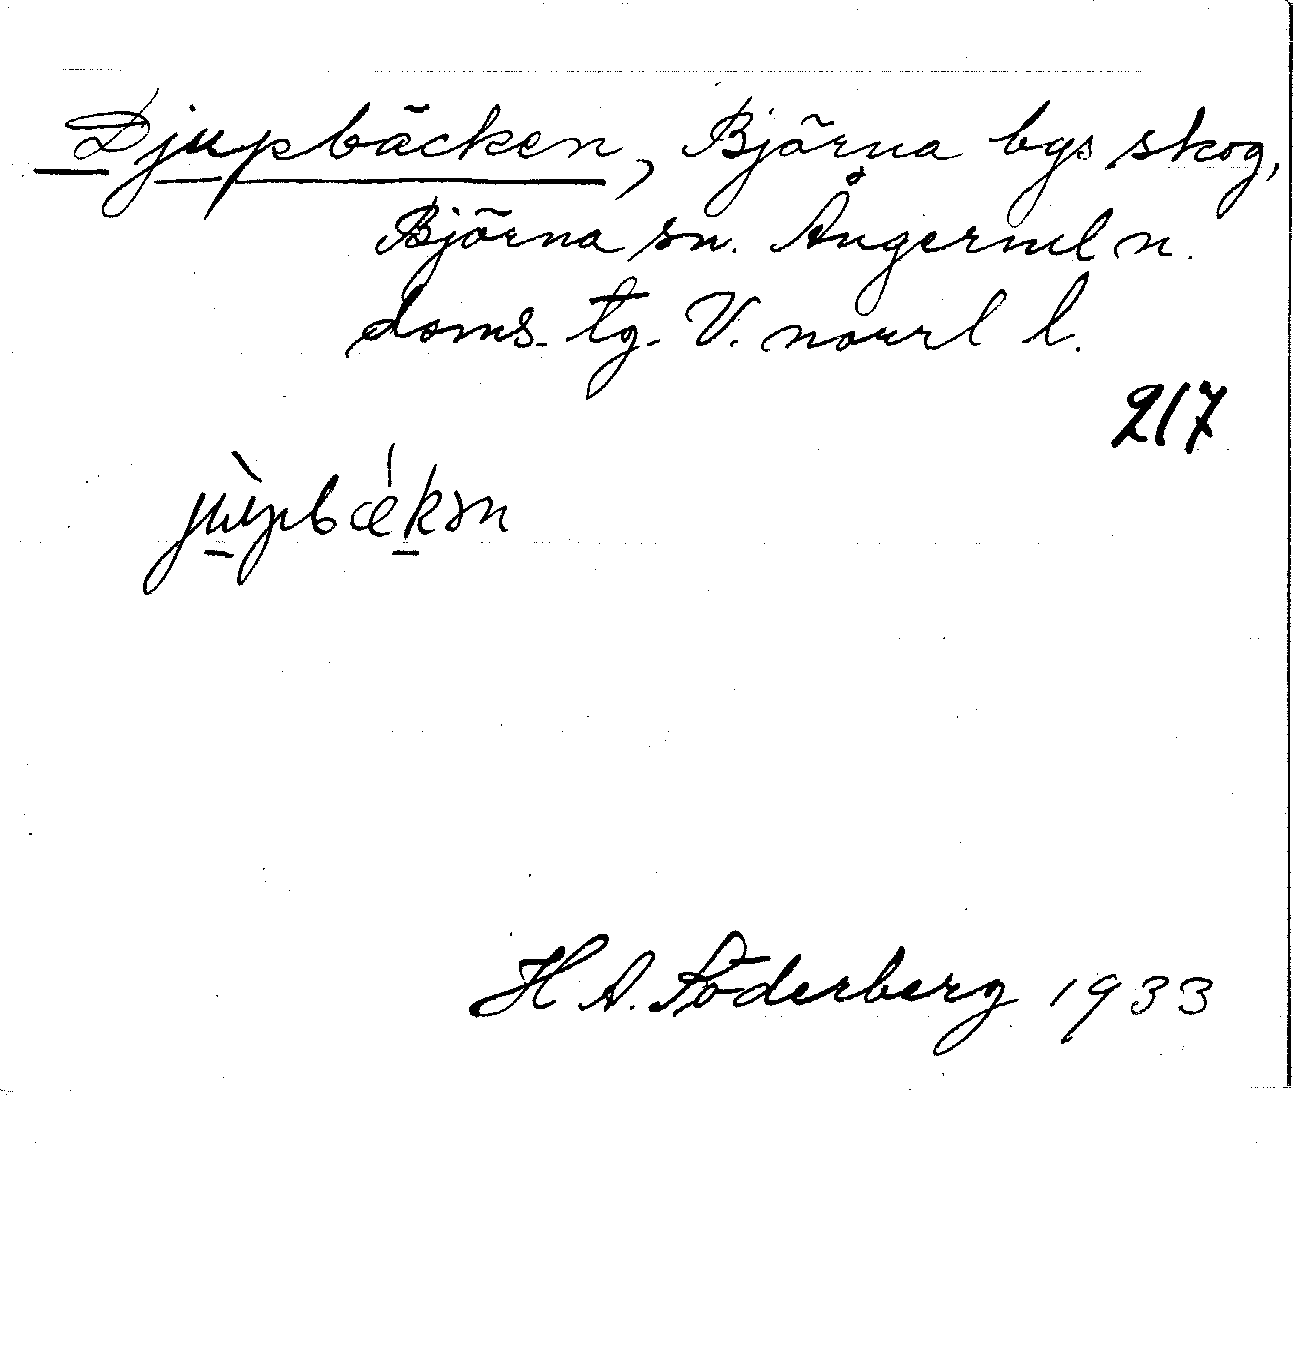 Djupbäcken, Björna bys skog,
Björna sn. Ångerml n.
doms. tg. V. norrl l.
217
jù̱pbǽḵən
H A. Söderberg 1933